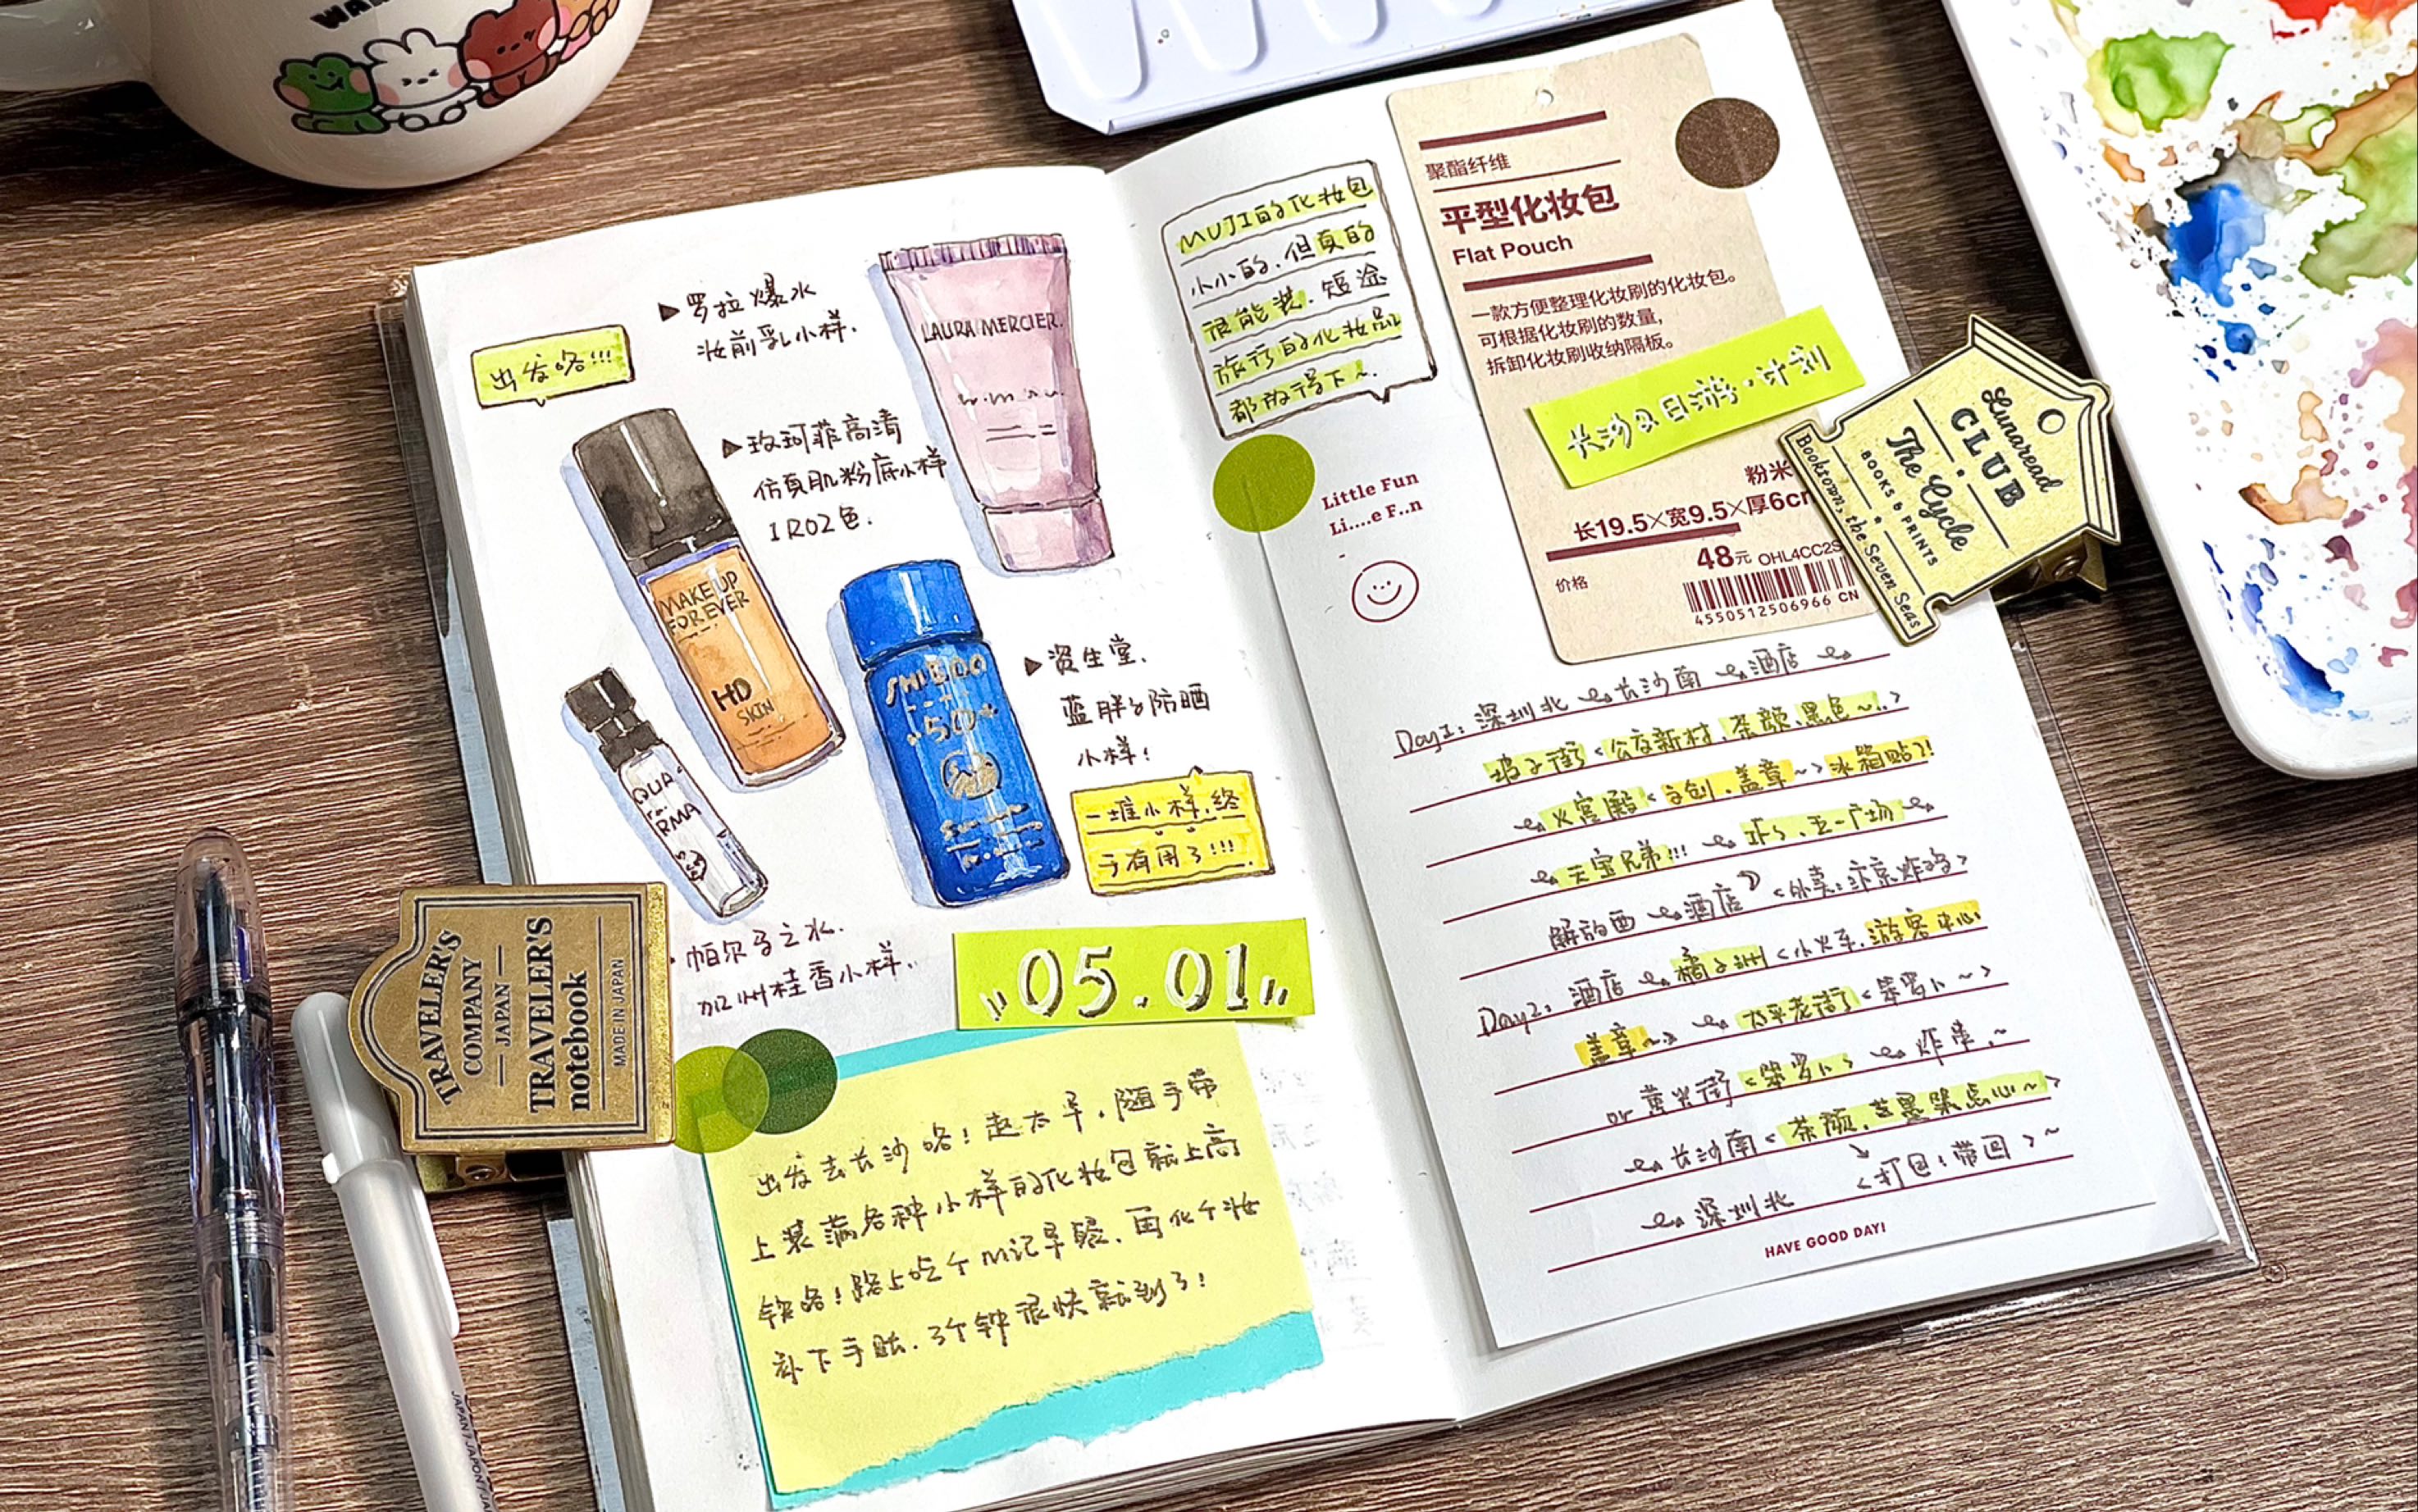 出发咯!!!
▶罗拉爆水
妆前乳小样.
LAURA MERCIER.
▶玫珂菲高清
仿真肌粉底小样
1R02色.
MAKE UP
FOREVER
HD
SKIN
▶资生堂.
蓝胖子防晒
小样!
50+
一堆小样,终
于有用了!!!
RMA
帕尔马之水.
加州桂香小样.
05.01
出发去长沙咯!起大早,随手带
上装满各种小样的化妆包就上高
铁咯!路上吃个M记早餐.画化个妆
补下手账.3个钟很快就到了!
TRAVELER'S
COMPANY
JAPAN
TRAVELER'S
notebook
MADE IN JAPAN
MUJI的化妆包
小小的.但真的
很能装.短途
旅行的化妆品
都放得下~.
聚酯纤维
平型化妆包
Flat Pouch
一款方便整理化妆刷的化妆包。
可根据化妆刷的数量,
拆卸化妆刷收纳隔板。
长沙2日游·计划
粉米
长19.5×宽9.5×厚6cm
48元 OHL4CC2S
价格
4550512506966 CN
Lunaread
CLUB
The Cycle
BOOKS & PRINTS
Booktown, the Seven Seas
Little Fun
Li....e F..n
Day1: 深圳北 长沙南 酒店
坡子街<公交新村.茶颜.黑色~..>
火宫殿<文创.盖章~>冰箱贴?!
天宝兄弟!!! 五一广场
解放西 酒店<外卖:汴京炸鸡>
Day2: 酒店 橘子洲<小火车.游客中心
盖章~> 太平老街<笨罗卜~>
or 黄兴街<笨罗卜> 炸串.~
长沙南<茶颜.墨点心~>
<打包!带回>~
深圳北
HAVE GOOD DAY!